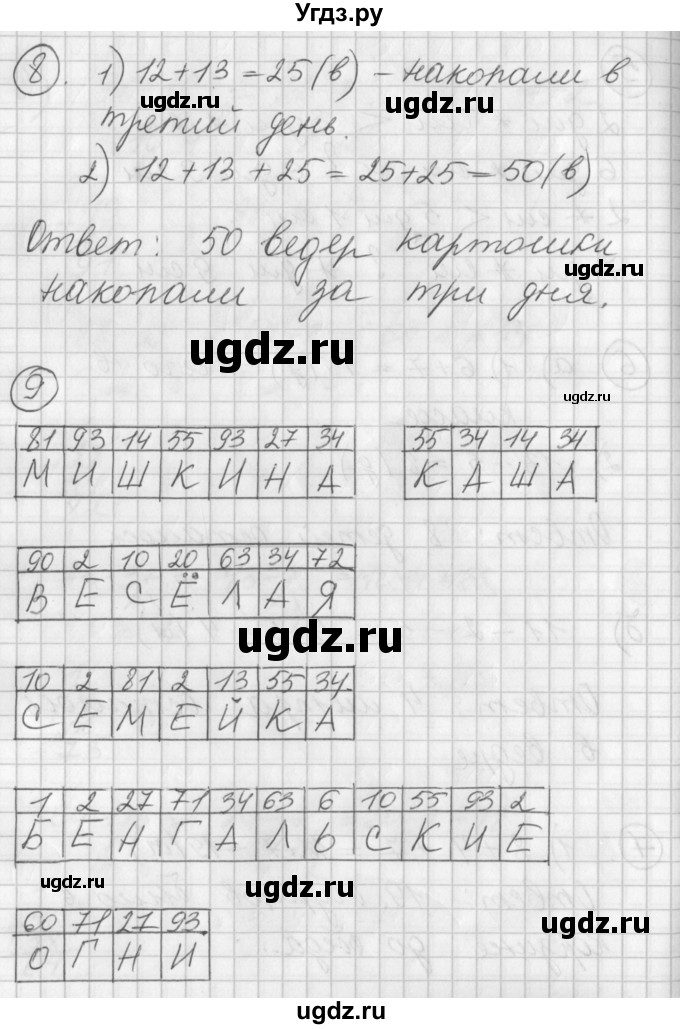 Угдз.ру
8. 1) 12+13=25(в) - накопали в
третий день.
2) 12+13+25=25+25=50(в)
Ответ: 50 ведер картошки
накопали за три дня.
ugdz.ru
ugdz.ru
ugdz.ru
ugdz.ru
9
81 93 14 55 93 27 34
М И Ш К И Н А
55 34 14 34
К А Ш А
90 2 10 20 63 34 72
В Е С Ё Л А Я
ugdz.ru
ugdz.ru
10 2 81 2 13 55 34
С Е М Е Й К А
1 2 27 71 34 63 6 10 55 93 2
Б Е Н Г А Л Ь С К И Е
ugdz.ru
ugdz.ru
ugdz.ru
60 71 27 93
О Г Н И
ugdz.ru